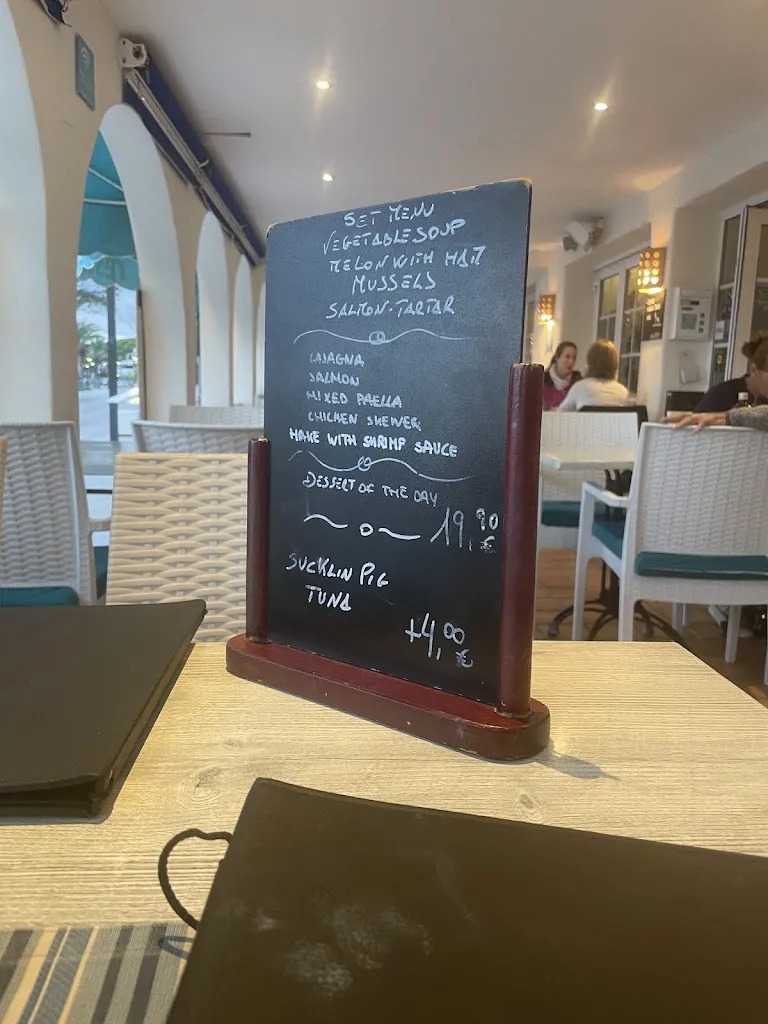 SET MENU
VEGETABLE SOUP
MELON WITH HAM
MUSSELS
SALMON-TARTAR
LASAGNA
SALMON
MIXED PAELLA
CHICKEN SKEWER
HAKE WITH SHRIMP SAUCE
DESSERT OF THE DAY
19,90 €
SUCKLIN PIG
TUNA
+4,00 €